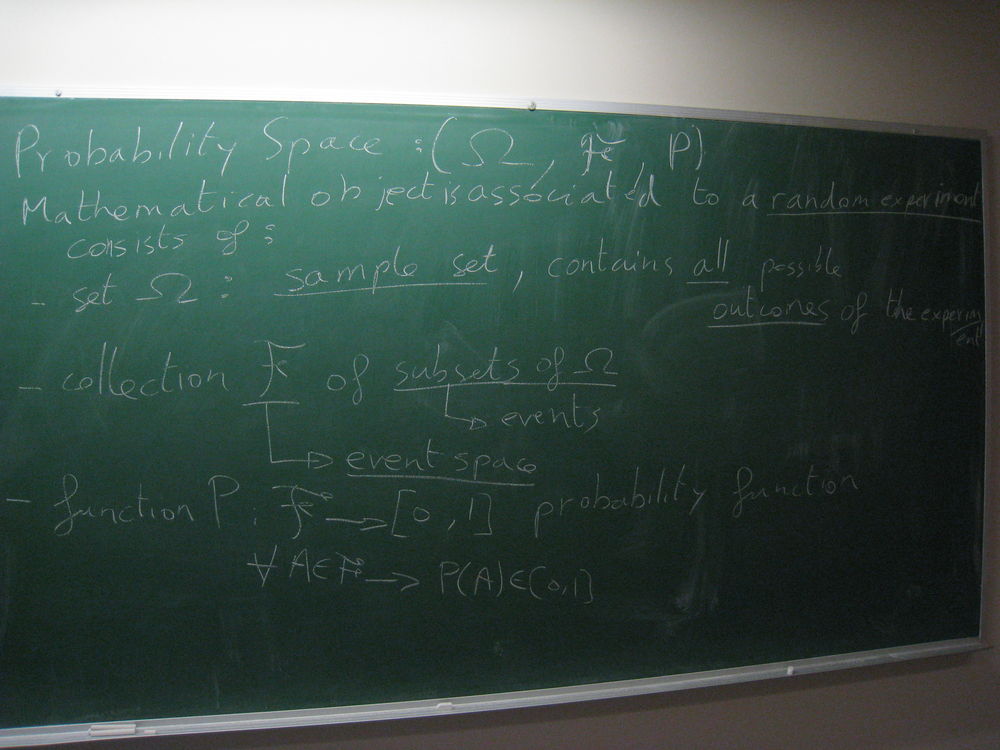 Probability Space : (Ω, ℱ, P)
Mathematical object is associated to a random experiment
consists of :
- set Ω : sample set, contains all possible
outcomes of the experiment
- collection ℱ of subsets of Ω
↳ events
↳ event space
- function P : ℱ → [0, 1] probability function
∀ A ∈ ℱ → P(A) ∈ [0,1]